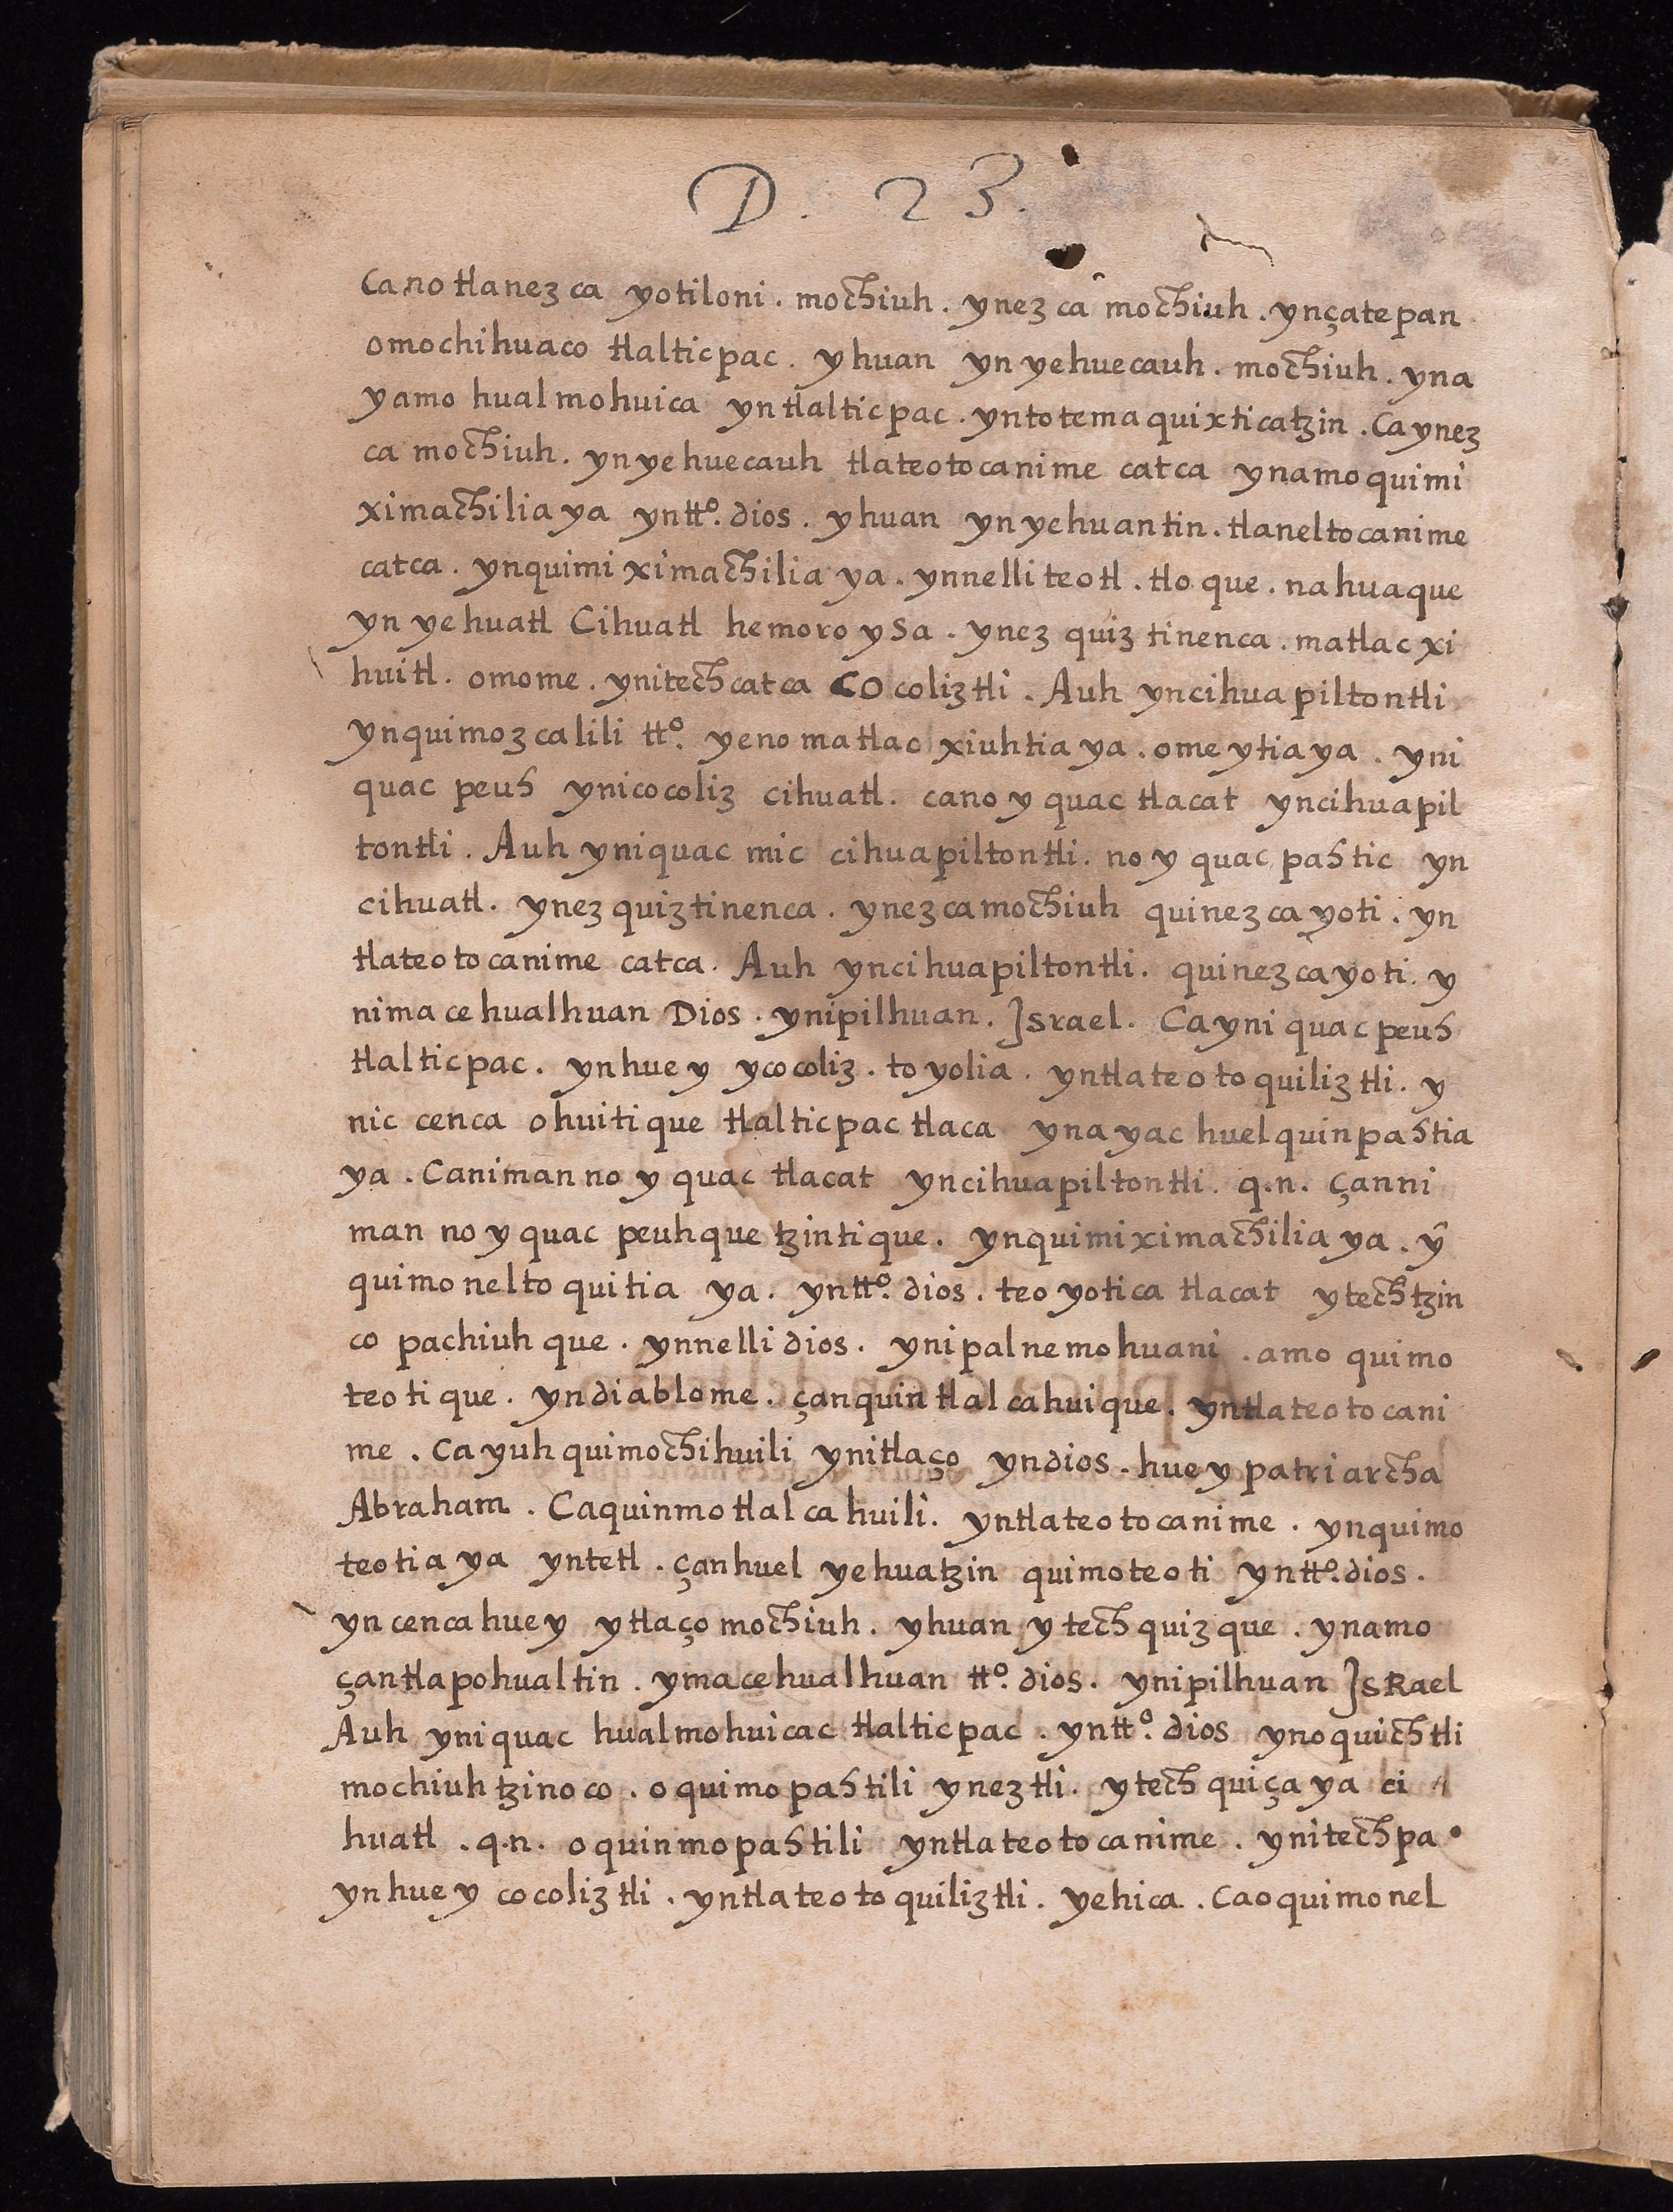 D. 23.
Cano tlanezca yotiloni. mochiuh. ynezca mochiuh. ynçatepan
omochihuaco tlalticpac. yhuan yn yehuecauh. mochiuh. yna
yamo hualmohuica yntlalticpac. yntotemaquixticatzin. Ca ynez
ca mochiuh. ynyehuecauh tlateotocanime catca ynamo quimi
ximachilia ya yntto. dios. yhuan ynyehuantin. tlaneltocanime
catca. ynquimiximachilia ya. ynnelli teotl. tloque. nahuaque
yn yehuatl Cihuatl hemoroysa. ynez quiz tinenca. matlac xi
huitl. omome. ynitech catca COcoliztli. Auh yncihuapiltontli
ynquimozcalili tto. yeno matlac xiuhtia ya. ome ytia ya. yni
quac peuh ynicocoliz cihuatl. cano yquac tlacat yncihuapil
tontli. Auh yniquac mic cihuapiltontli. no yquac pahtic yn
cihuatl. ynez quiztinenca. ynezca mochiuh quinezcayoti. yn
tlateotocanime catca. Auh yncihuapiltontli. quinezcayoti. y
nimacehualhuan Dios. ynipilhuan. Israel. Ca yni quac peuh
tlalticpac. ynhuey ycocoliz. toyolia. yntlateotoquiliztli. y
nic cenca ohuitique tlalticpac tlaca yna yac huel quinpahtia
ya. Caniman no yquac tlacat yncihuapiltontli. q.n. çanni
man no yquac peuhque tzintique. ynquimiximachilia ya. ȳ
quimoneltoquitia ya. yntto. dios. teoyotica tlacat ytechtzin
co pachiuhque. ynnelli dios. ynipalnemohuani. amo quimo
teotique. yndiablome. çanquin tlalcahuique. yntlateotocani
me. Ca yuh quimochihuili ynitlaço yndios. huey patriarcha
Abraham. Caquinmotlalcahuili. yntlateotocanime. ynquimo
teotia ya yntetl. çanhuel yehuatzin quimoteoti yntto. dios.
yn cenca huey ytlaço mochiuh. yhuan ytech quizque. ynamo
çantlapohualtin. ymacehualhuan tto. dios. ynipilhuan IsRael
Auh yniquac hualmohuicac tlalticpac. yntto. dios ynoquichtli
mochiuhtzinoco. oquimopahtili yneztli. ytech quiçaya ci
huatl. q.n. oquinmopahtili yntlateotocanime. ynitechpa
ynhuey cocoliztli. yntlateotoquiliztli. yehica. Caoquimonel